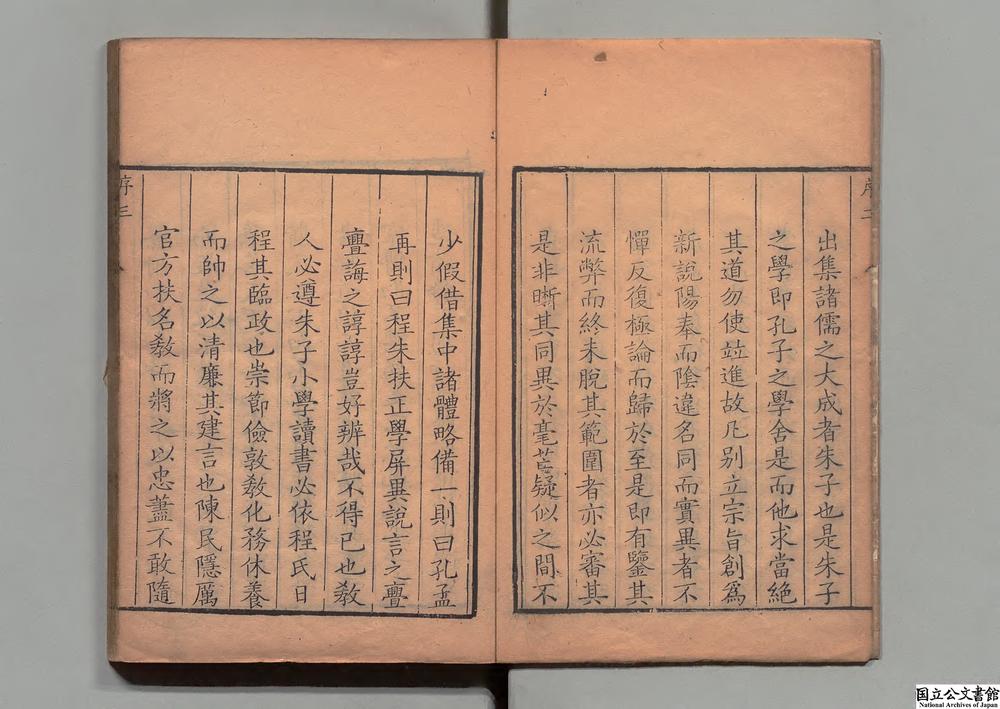 序二
出集諸儒之大成者朱子也是朱子
之學即孔子之學舍是而他求當絕
其道勿使竝進故凡别立宗旨創爲
新說陽奉而陰違名同而實異者不
憚反復極論而歸於至是即有鑒其
流弊而終未脫其範圍者亦必審其
是非晰其同異於毫芒疑似之間不
少假借集中諸體略備一則曰孔孟
再則曰程朱扶正學屏異說言之亹
亹誨之諄諄豈好辨哉不得已也教
人必遵朱子小學讀書必依程氏日
程其臨政也崇節儉敦教化務休養
而帥之以清廉其建言也陳民隱厲
官方扶名教而將之以忠藎不敢隨
序三
国立公文書館
National Archives of Japan